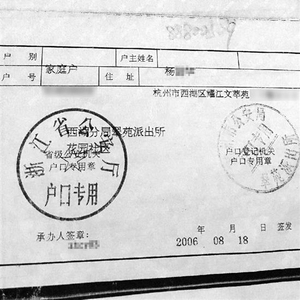 户 别 户主姓名
家庭户 杨
户 号 住 址
杭州市西湖区耀江文萃苑
浙江省公安厅
户口专用
西湖分局翠苑派出所
省级公安机关
户口专用章
户口登记机关
户口专用章
承办人签章:
年 月 日 签发
2006 08 18